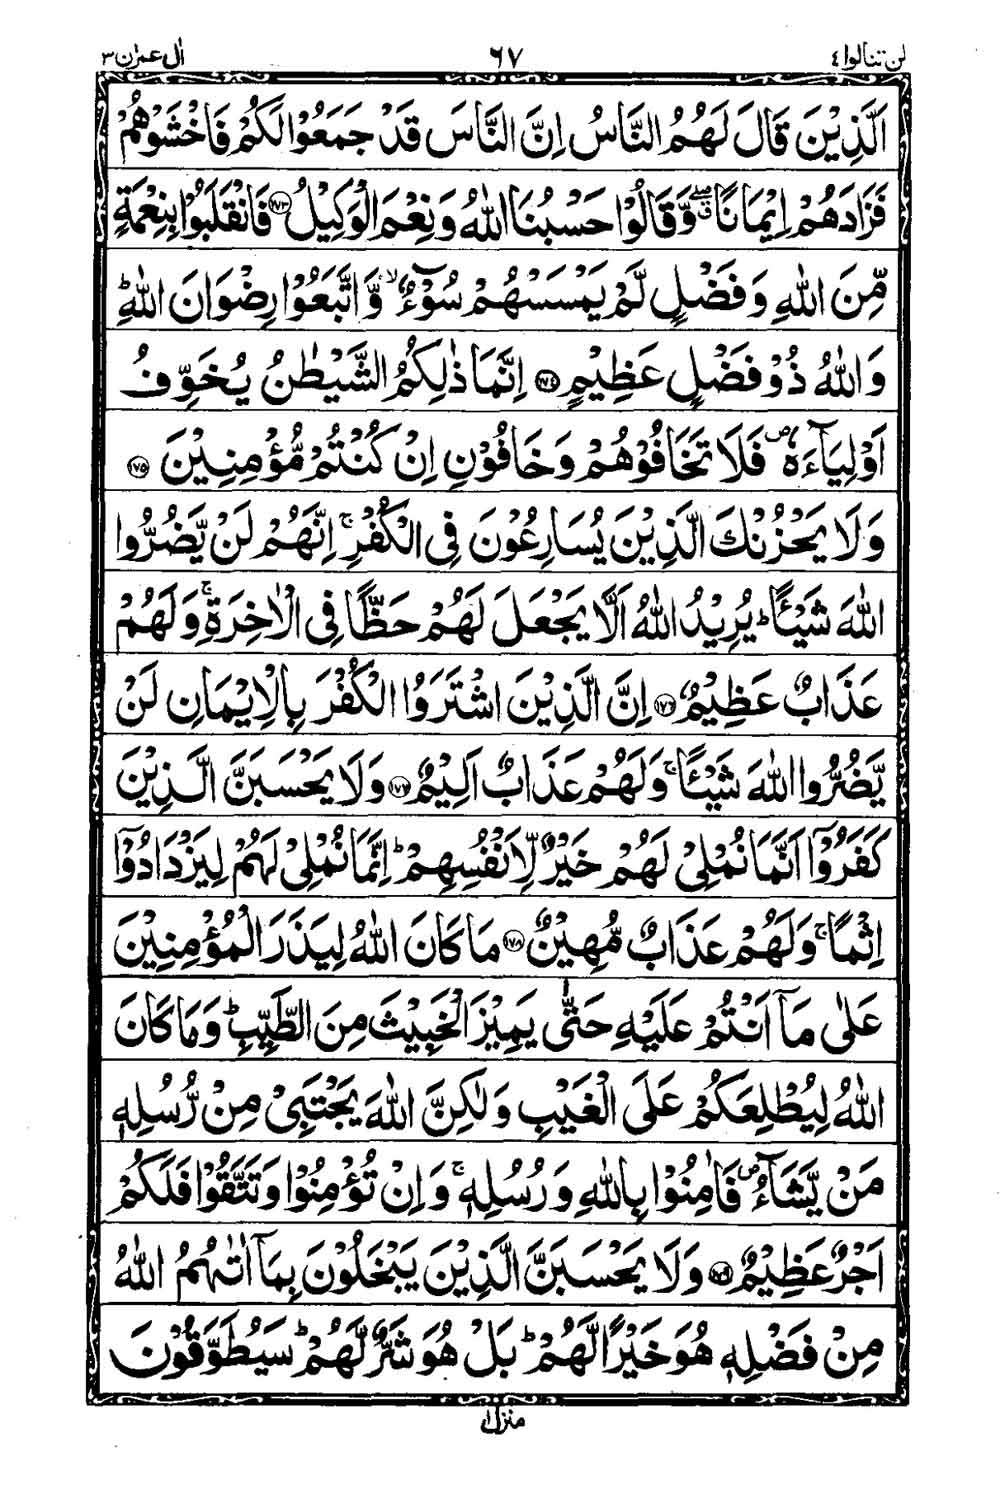 لن تنالوا ٤ ٦٧ اٰل عمرٰن ٣
اَلَّذِيْنَ قَالَ لَهُمُ النَّاسُ اِنَّ النَّاسَ قَدْ جَمَعُوْا لَكُمْ فَاخْشَوْهُمْ
فَزَادَهُمْ اِيْمَانًا ۖۗ وَّقَالُوْا حَسْبُنَا اللّٰهُ وَنِعْمَ الْوَكِيْلُ ﴿١٧٣﴾ فَانْقَلَبُوْا بِنِعْمَةٍ
مِّنَ اللّٰهِ وَفَضْلٍ لَّمْ يَمْسَسْهُمْ سُوْٓءٌ ۙ وَّاتَّبَعُوْا رِضْوَانَ اللّٰهِ ؕ
وَاللّٰهُ ذُوْ فَضْلٍ عَظِيْمٍ ﴿١٧٤﴾ اِنَّمَا ذٰلِكُمُ الشَّيْطٰنُ يُخَوِّفُ
اَوْلِيَآءَهٗ ۪ فَلَا تَخَافُوْهُمْ وَخَافُوْنِ اِنْ كُنْتُمْ مُّؤْمِنِيْنَ ﴿١٧٥﴾
وَلَا يَحْزُنْكَ الَّذِيْنَ يُسَارِعُوْنَ فِي الْكُفْرِ ۚ اِنَّهُمْ لَنْ يَّضُرُّوا
اللّٰهَ شَيْـًٔا ؕ يُرِيْدُ اللّٰهُ اَلَّا يَجْعَلَ لَهُمْ حَظًّا فِي الْاٰخِرَةِ ۚ وَلَهُمْ
عَذَابٌ عَظِيْمٌ ﴿١٧٦﴾ اِنَّ الَّذِيْنَ اشْتَرَوُا الْكُفْرَ بِالْاِيْمَانِ لَنْ
يَّضُرُّوا اللّٰهَ شَيْـًٔا ۚ وَلَهُمْ عَذَابٌ اَلِيْمٌ ﴿١٧٧﴾ وَلَا يَحْسَبَنَّ الَّذِيْنَ
كَفَرُوْٓا اَنَّمَا نُمْلِيْ لَهُمْ خَيْرٌ لِّاَنْفُسِهِمْ ؕ اِنَّمَا نُمْلِيْ لَهُمْ لِيَزْدَادُوْٓا
اِثْمًا ۚ وَلَهُمْ عَذَابٌ مُّهِيْنٌ ﴿١٧٨﴾ مَا كَانَ اللّٰهُ لِيَذَرَ الْمُؤْمِنِيْنَ
عَلٰى مَآ اَنْتُمْ عَلَيْهِ حَتّٰى يَمِيْزَ الْخَبِيْثَ مِنَ الطَّيِّبِ ؕ وَمَا كَانَ
اللّٰهُ لِيُطْلِعَكُمْ عَلَى الْغَيْبِ وَلٰكِنَّ اللّٰهَ يَجْتَبِيْ مِنْ رُّسُلِهٖ
مَنْ يَّشَآءُ ۪ فَاٰمِنُوْا بِاللّٰهِ وَرُسُلِهٖ ۚ وَاِنْ تُؤْمِنُوْا وَتَتَّقُوْا فَلَكُمْ
اَجْرٌ عَظِيْمٌ ﴿١٧٩﴾ وَلَا يَحْسَبَنَّ الَّذِيْنَ يَبْخَلُوْنَ بِمَآ اٰتٰىهُمُ اللّٰهُ
مِنْ فَضْلِهٖ هُوَ خَيْرًا لَّهُمْ ؕ بَلْ هُوَ شَرٌّ لَّهُمْ ؕ سَيُطَوَّقُوْنَ
منزل ١